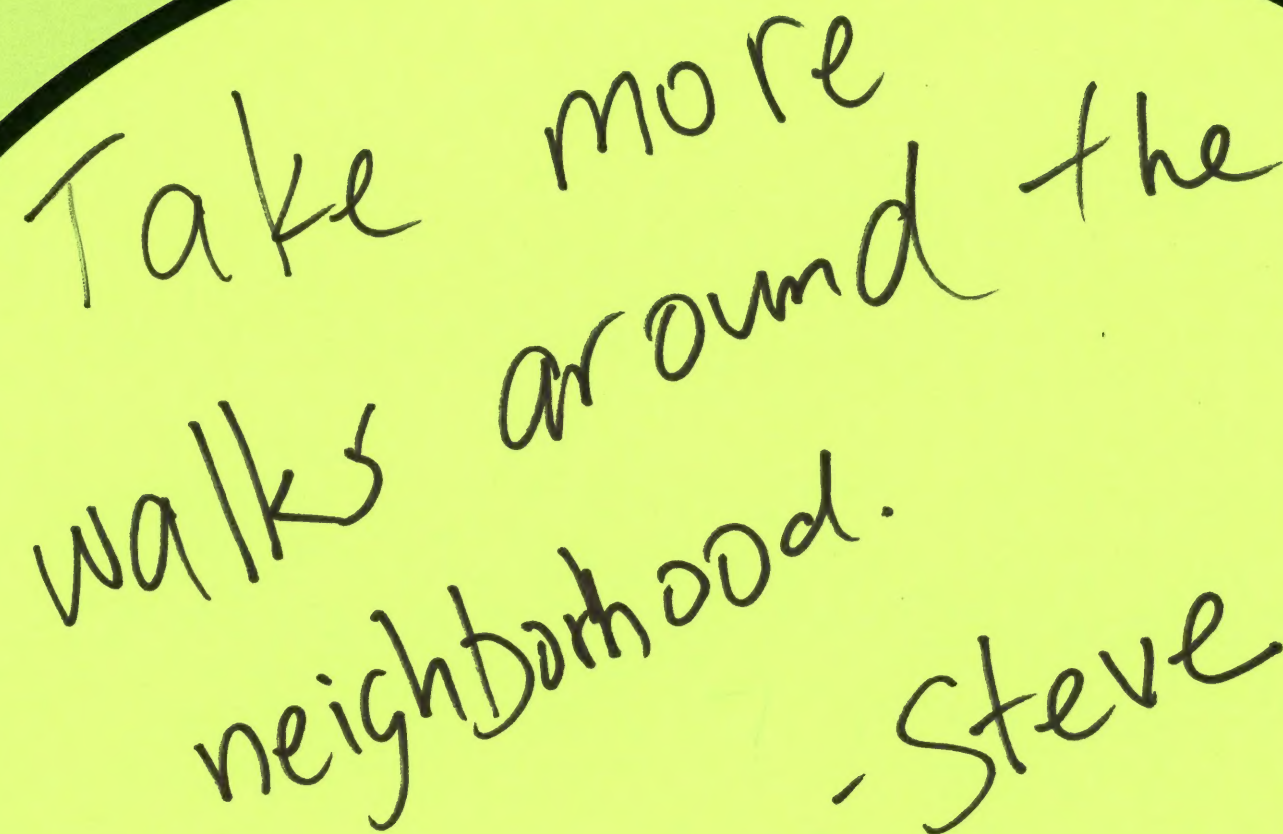 Take more
walks around the
neighborhood.
-Steve